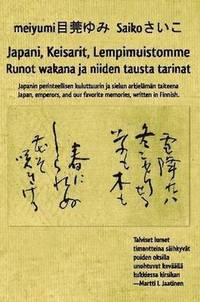 meiyumi目莞ゆみ Saikoさいこ
Japani, Keisarit, Lempimuistomme
Runot wakana ja niiden tausta tarinat
Japanin perinteellisen kulttuurin ja sielun arkielämän taiteena
Japan, emperors, and our favorite memories, written in Finnish.
草も木も
春に
Talviset lumet
timantteina säihkyvät
puiden oksilla
unohtuvat keväällä
kukkiessa kirsikan
—Martti I. Jaatinen